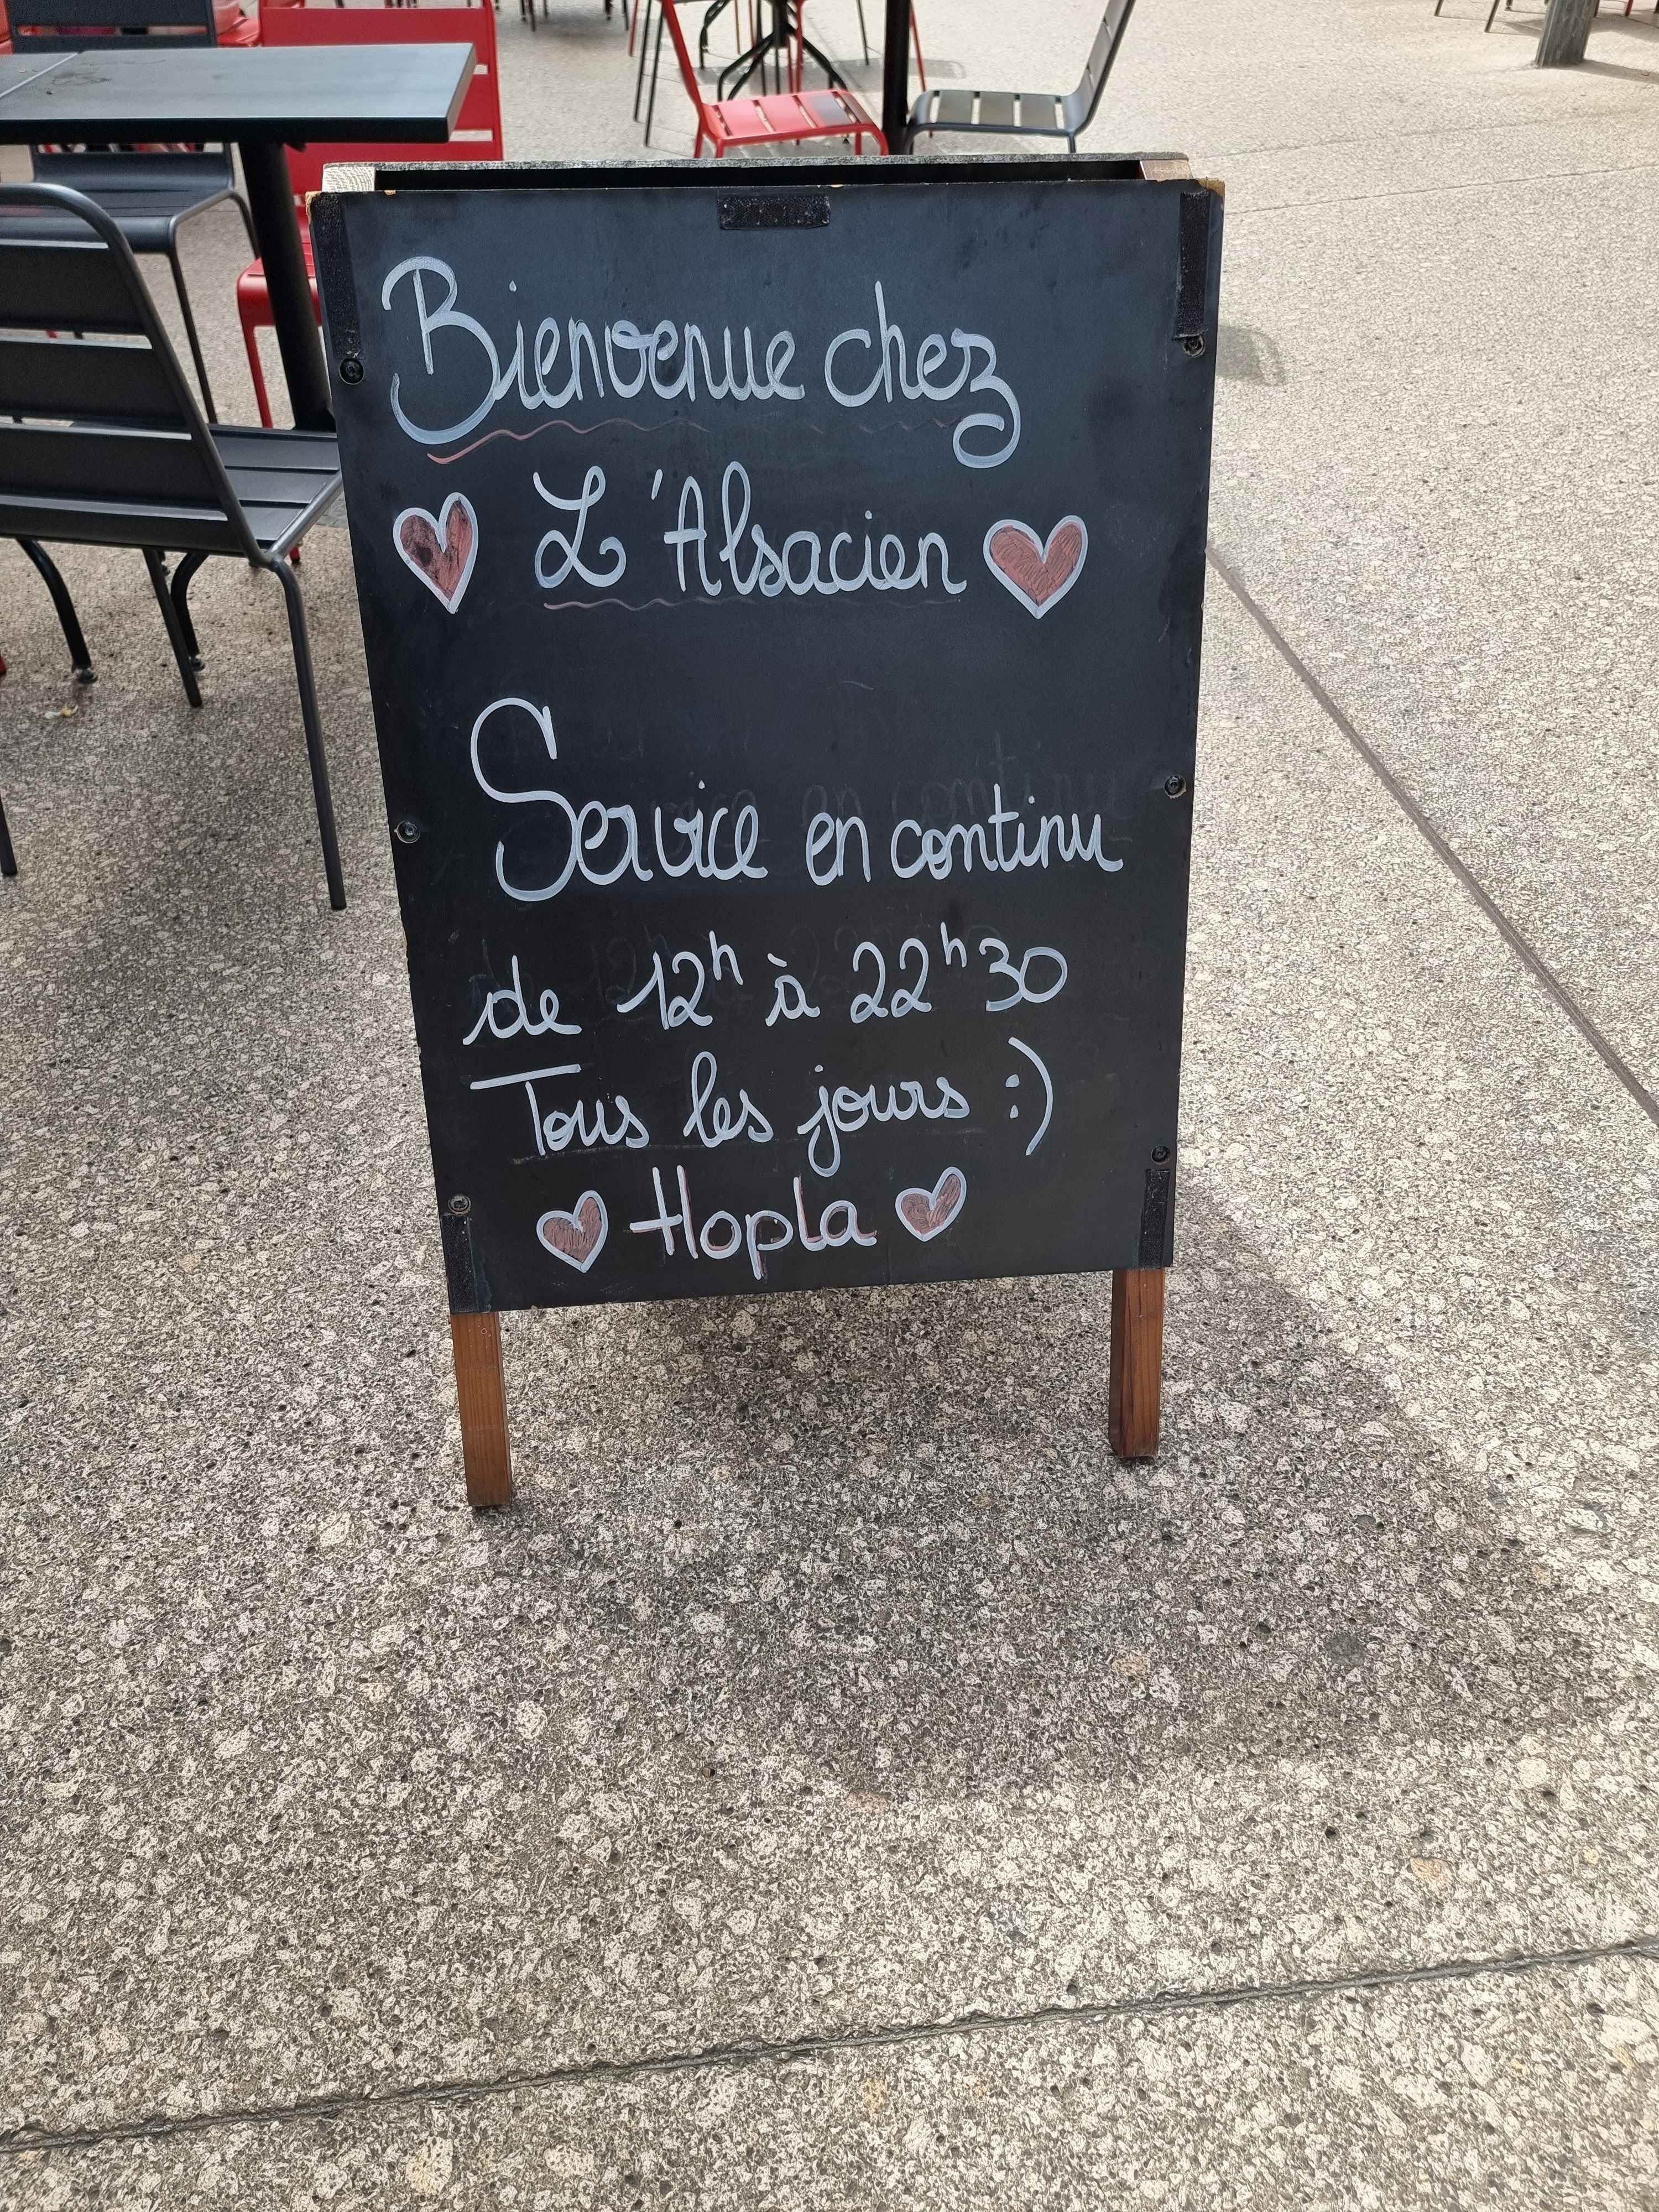 Bienvenue chez
L'Alsacien
Service en continu
de 12h à 22h30
Tous les jours :)
Hopla